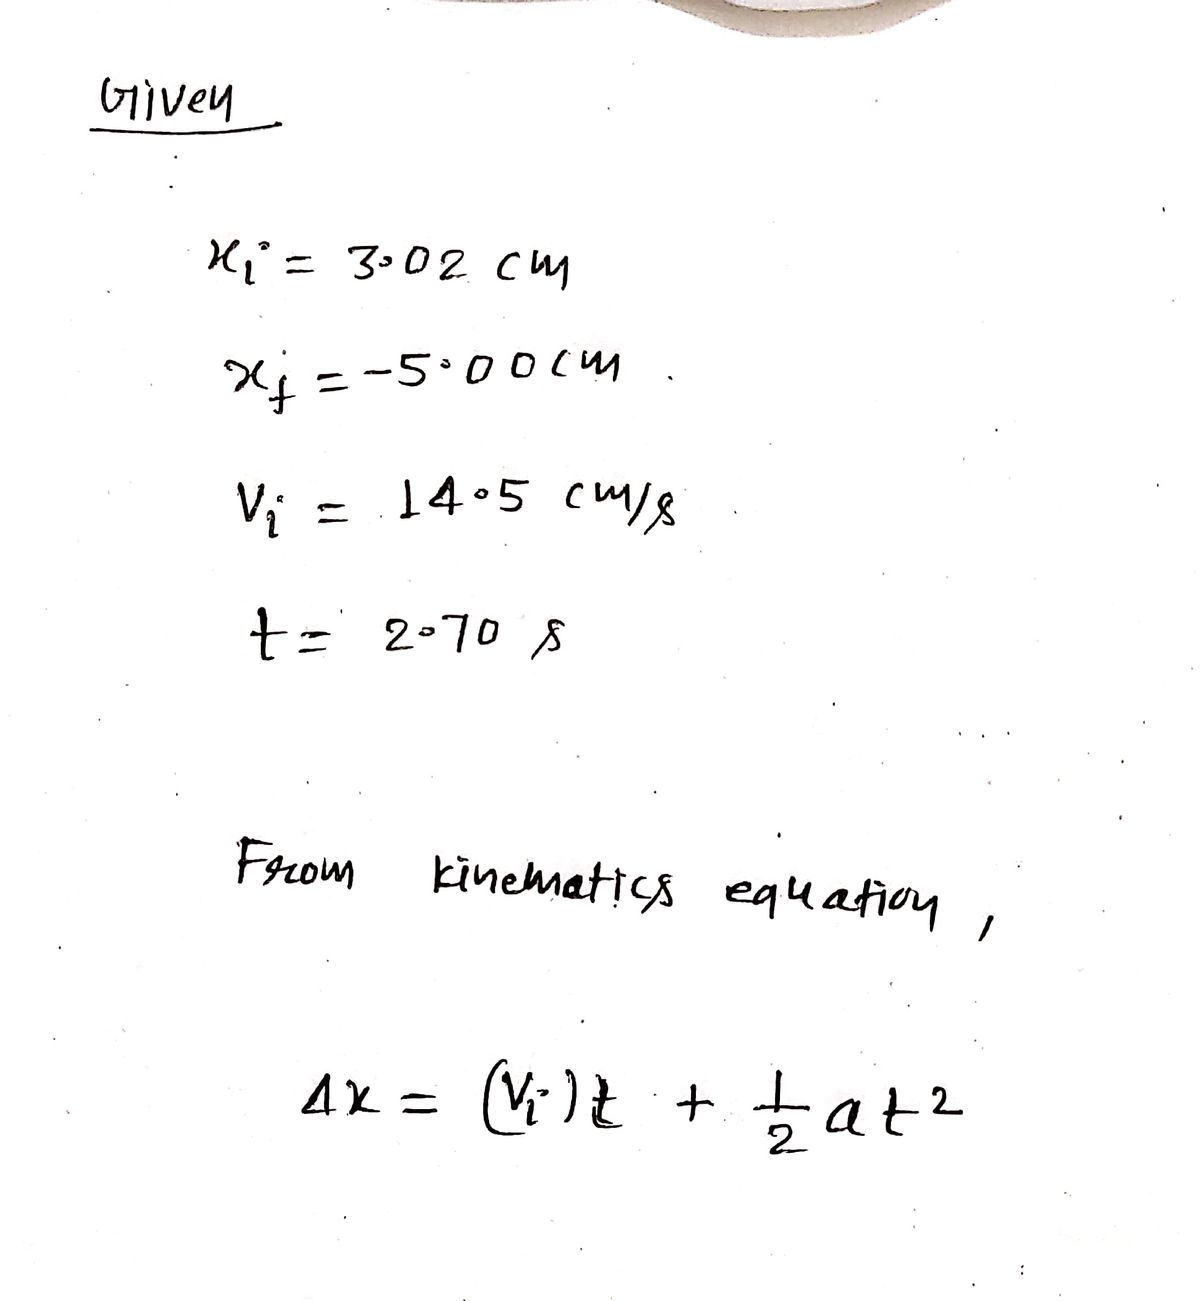 Given
xi = 3.02 cm
xf = -5.00 cm
Vi = 14.5 cm/s
t = 2.70 s
From kinematics equation,
Δx = (Vi)t + 1/2 at²